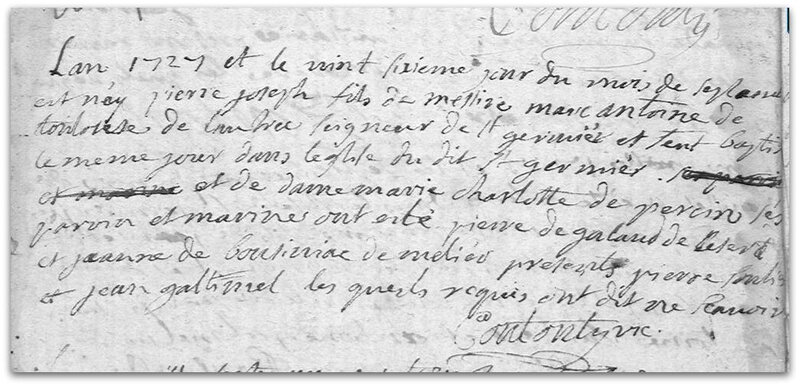 Lan 1727 et le vint sixieme jour du mois de septembre
est néy pierre joseph fils de messire marc antoine de
toulouse de lautrec seigneur de st germier et feut baptisé
le meme jour dans leglise du dit st germier
et de dame marie charlotte de percin ses
parain et marine ont esté pierre de galaud de
et jeanne de bousiniac de presents pierre
et jean galtimel les quels requis ont dit ne scavoir